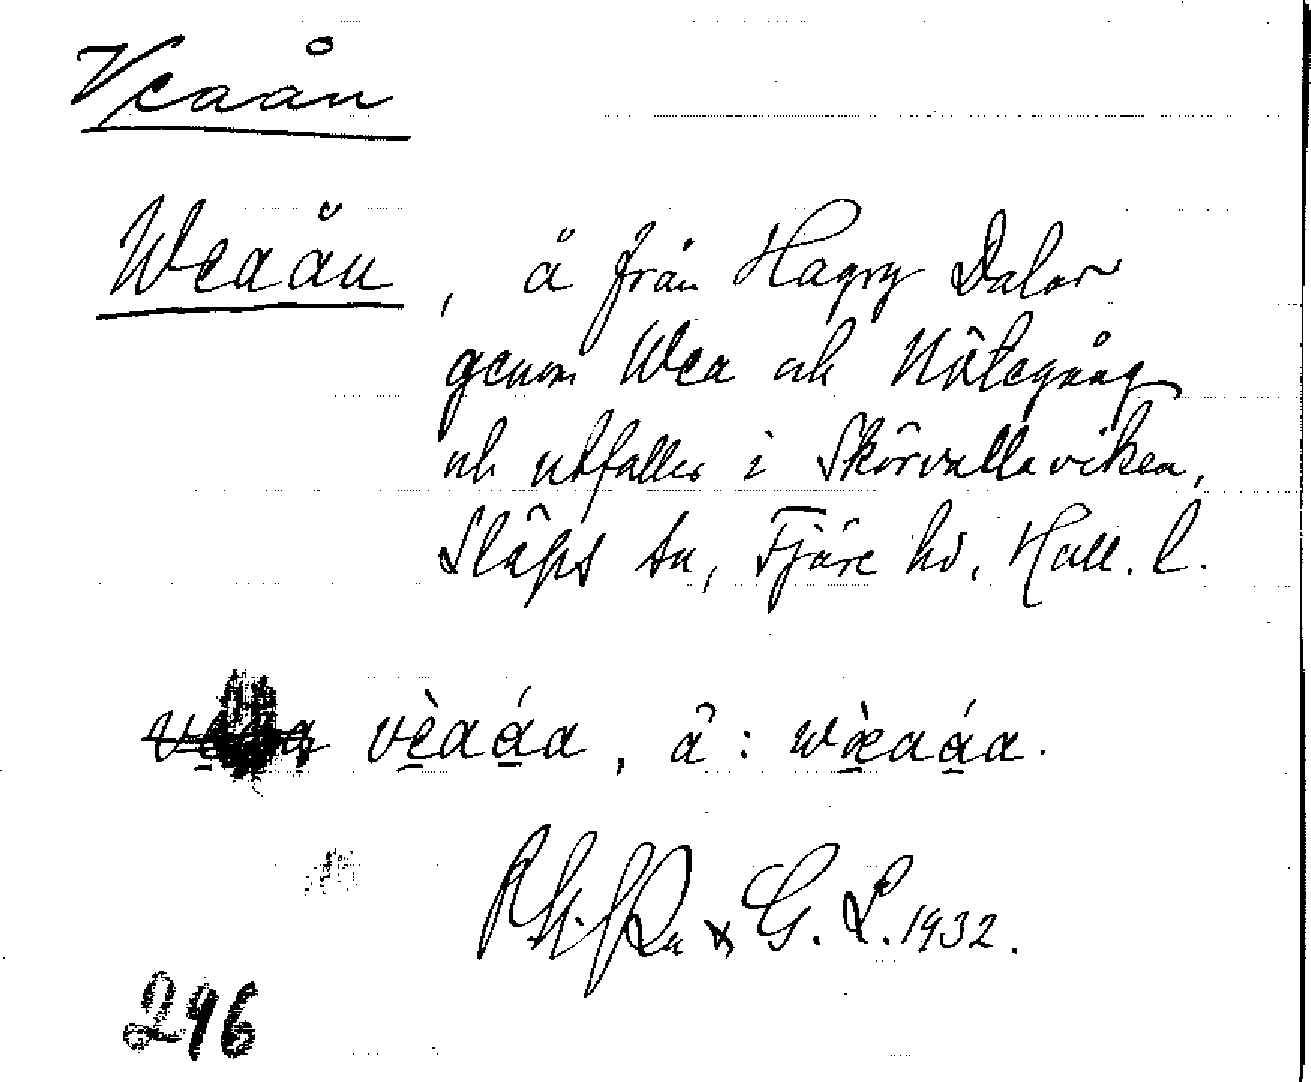 Veaån
Weaån, å från Hagry Dalar
genom Wea och Nötegång
och utfaller i Skörvallaviken,
Släps sn, Fjäre hd, Hall. l.
vèaáa, å: wæ̀aáa.
& G. L. 1932.
296